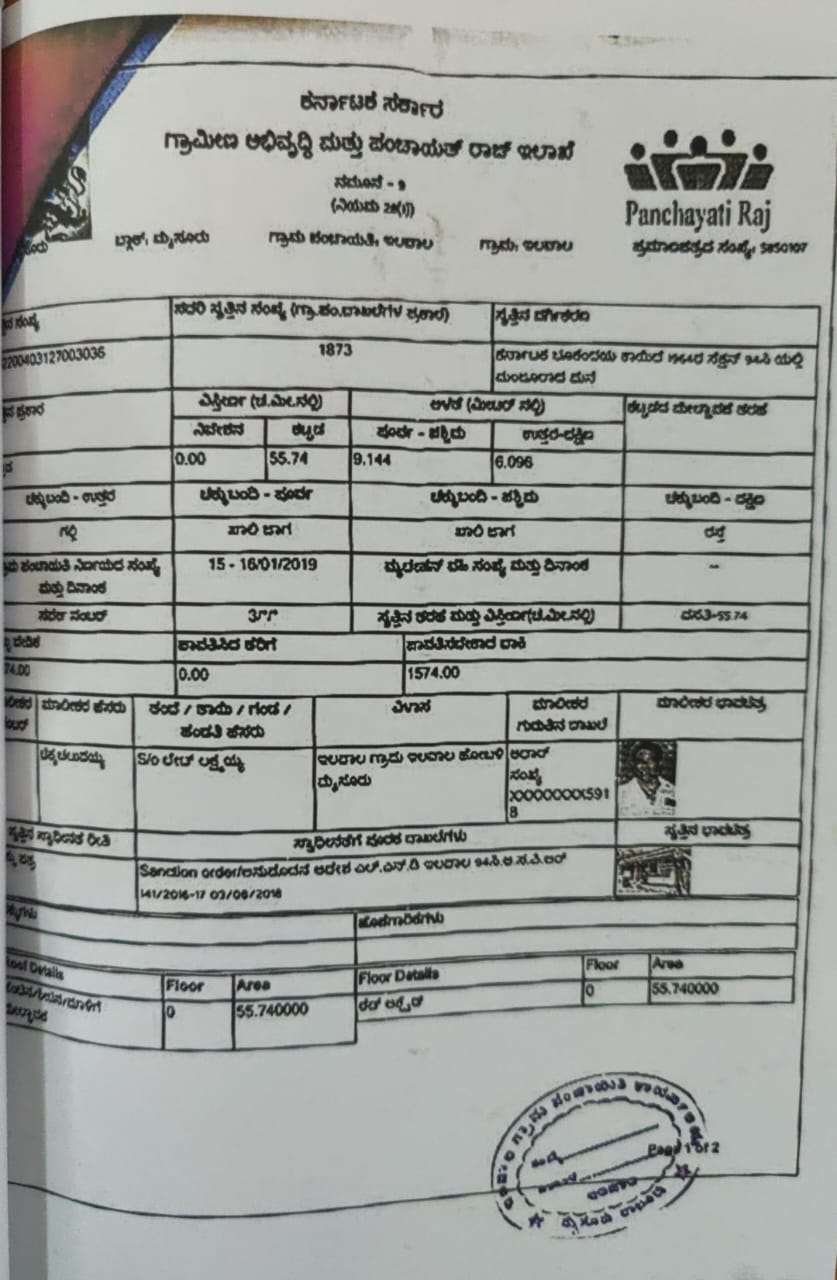 ಕರ್ನಾಟಕ ಸರ್ಕಾರ
ಗ್ರಾಮೀಣ ಅಭಿವೃದ್ಧಿ ಮತ್ತು ಪಂಚಾಯತ್ ರಾಜ್ ಇಲಾಖೆ
ನಮೂನೆ - 9
(ನಿಯಮ 28(i))
Panchayati Raj
ಬ್ಲಾಕ್, ಮೈಸೂರು ಗ್ರಾಮ ಪಂಚಾಯತಿ, ಇಲವಾಲ ಗ್ರಾಮ, ಇಲವಾಲ ಪ್ರಮಾಣಪತ್ರದ ಸಂಖ್ಯೆ, 5850107
ಸಂಖ್ಯೆ ಸದರಿ ಸ್ವತ್ತಿನ ಸಂಖ್ಯೆ (ಗ್ರಾ.ಪಂ.ದಾಖಲೆಗಳ ಪ್ರಕಾರ) ಸ್ವತ್ತಿನ ವರ್ಗೀಕರಣ
200403127003036 1873 ಕರ್ನಾಟಕ ಭೂಕಂದಾಯ ಕಾಯಿದೆ 1964ರ ಸೆಕ್ಷನ್ 94ಸಿ ಯಲ್ಲಿ
ಮಂಜೂರಾದ ಮನೆ
ಪ್ರಕಾರ ವಿಸ್ತೀರ್ಣ (ಚ.ಮೀ.ನಲ್ಲಿ) ಅಳತೆ (ಮೀಟರ್ ನಲ್ಲಿ) ಕಟ್ಟಡದ ಮೇಲ್ಛಾವಣಿ ತರಹ
ನಿವೇಶನ ಕಟ್ಟಡ ಪೂರ್ವ - ಪಶ್ಚಿಮ ಉತ್ತರ-ದಕ್ಷಿಣ
0.00 55.74 9.144 6.096
ಚಕ್ಕುಬಂದಿ - ಉತ್ತರ ಚಕ್ಕುಬಂದಿ - ಪೂರ್ವ ಚಕ್ಕುಬಂದಿ - ಪಶ್ಚಿಮ ಚಕ್ಕುಬಂದಿ - ದಕ್ಷಿಣ
ಗಲ್ಲಿ ಖಾಲಿ ಜಾಗ ಖಾಲಿ ಜಾಗ ರಸ್ತೆ
ಪಂಚಾಯತಿ ನಿರ್ಣಯದ ಸಂಖ್ಯೆ 15 - 16/01/2019 ಮ್ಯುಟೇಷನ್ ವಹಿ ಸಂಖ್ಯೆ ಮತ್ತು ದಿನಾಂಕ --
ಮತ್ತು ದಿನಾಂಕ
ಸರ್ವೆ ನಂಬರ್ ಸ್ವತ್ತಿನ ತರಹ ಮತ್ತು ವಿಸ್ತೀರ್ಣ(ಚ.ಮೀ.ನಲ್ಲಿ) ವಸತಿ-55.74
ಪಾವತಿಸಿದ ತೆರಿಗೆ ಪಾವತಿಸಬೇಕಾದ ಬಾಕಿ
74.00 0.00 1574.00
ಮಾಲೀಕರ ಹೆಸರು ತಂದೆ / ತಾಯಿ / ಗಂಡ / ವಿಳಾಸ ಮಾಲೀಕರ ಮಾಲೀಕರ ಭಾವಚಿತ್ರ
ಹೆಂಡತಿ ಹೆಸರು ಗುರುತಿನ ದಾಖಲೆ
ಚಿಕ್ಕಚಲುವಯ್ಯ S/o ಲೇಟ್ ಲಕ್ಷ್ಮಯ್ಯ ಇಲವಾಲ ಗ್ರಾಮ ಇಲವಾಲ ಹೋಬಳಿ ಆಧಾರ್
ಮೈಸೂರು ಸಂಖ್ಯೆ
XXXXXXXX591
8
ಸ್ವತ್ತಿನ ಸ್ವಾಧೀನತೆ ರೀತಿ ಸ್ವಾಧೀನತೆಗೆ ಪೂರಕ ದಾಖಲೆಗಳು ಸ್ವತ್ತಿನ ಭಾವಚಿತ್ರ
ಪತ್ರ Sanction order/ಅನುಮೋದನೆ ಆದೇಶ ಎಲ್.ಎನ್.ಡಿ ಇಲವಾಲ 94.ಸಿ.ಆ.ಸ.ವಿ.ಆರ್
141/2016-17 03/06/2018
ಹೊಣೆಗಾರಿಕೆಗಳು
Roof Details Floor Area Floor Details Floor Area
0 55.740000 ರೆಡ್ ಆಕ್ಸೈಡ್ 0 55.740000
Page 1 of 2